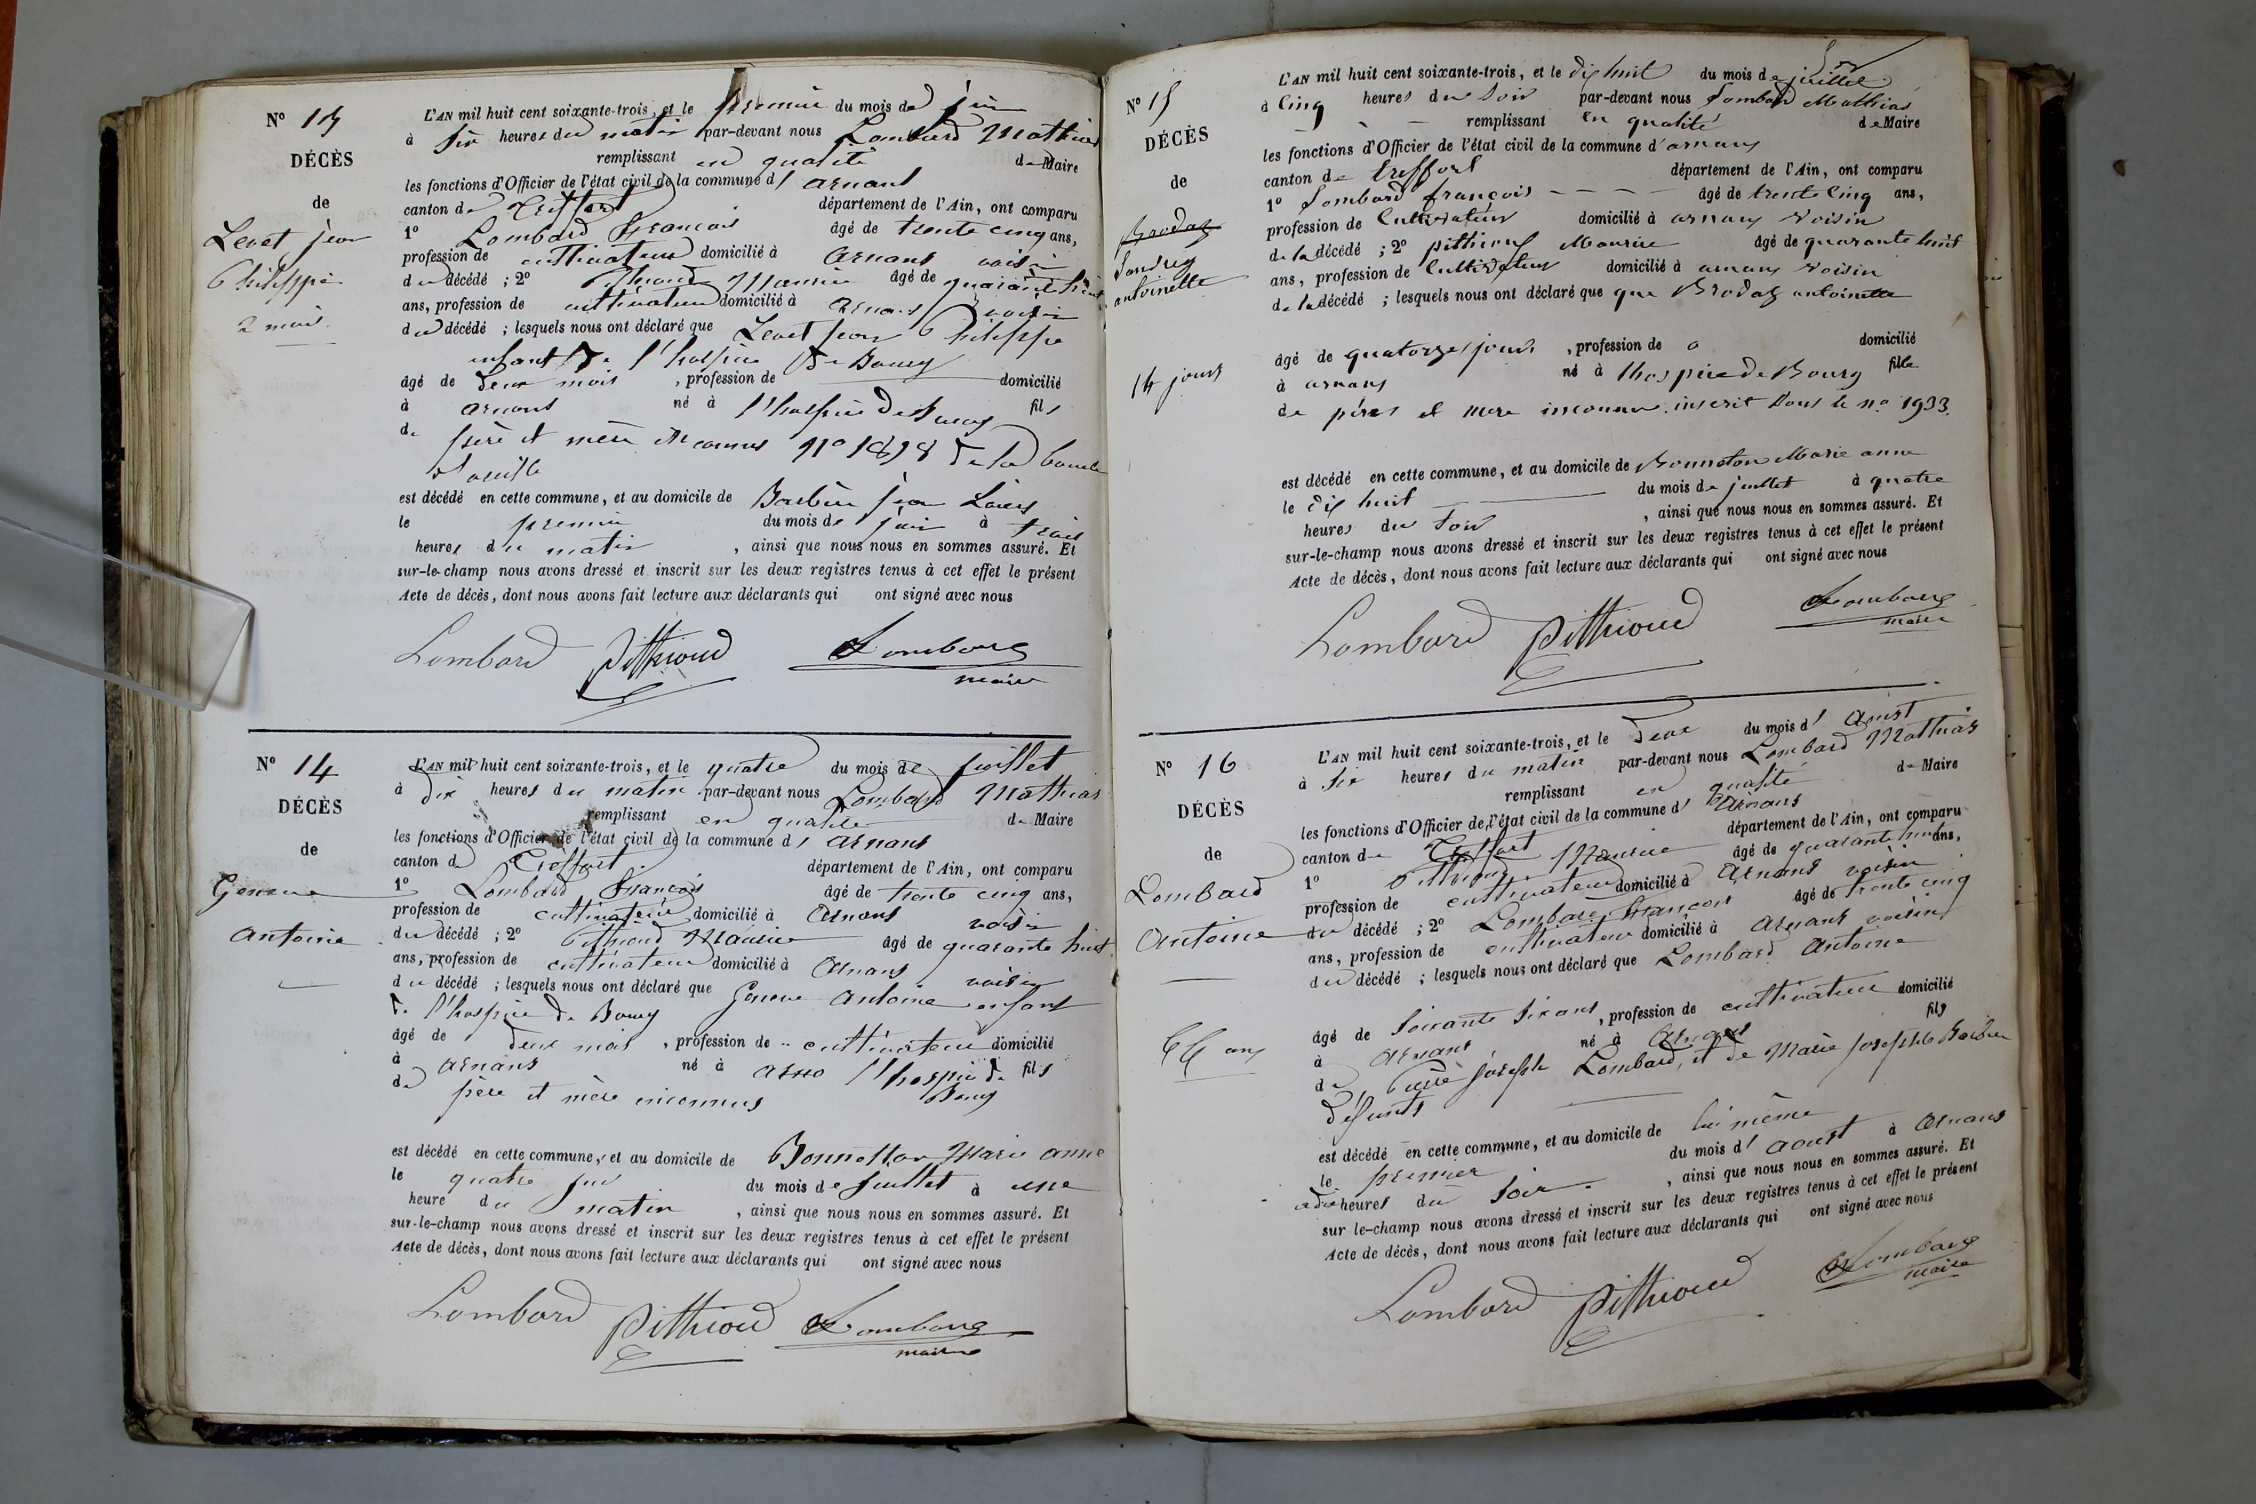 N° 13
DÉCÈS
de
Levet jean
Philippe
2 mois.
L'AN mil huit cent soixante-trois, et le premier du mois de juin
à six heures du matin par-devant nous Lombard Mathias
remplissant en qualité de Maire
les fonctions d'Officier de l'état civil de la commune d' arnans
canton de Treffort département de l'Ain, ont comparu
1° Lombard François âgé de trente cinq ans,
profession de cultivateur domicilié à arnans voisin
du décédé ; 2° Pithioud Maurice âgé de quarante huit
ans, profession de cultivateur domicilié à arnans voisin
du décédé ; lesquels nous ont déclaré que Levet jean Philippe
enfant de l'hospice De Bourg
âgé de deux mois , profession de domicilié
à arnans né à l'hospice de Bourg fils
de père et mère inconnus N° 1898 de la
est décédé en cette commune, et au domicile de Barbier jean Louis
le premier du mois de juin à trois
heures du matin , ainsi que nous nous en sommes assuré. Et
sur-le-champ nous avons dressé et inscrit sur les deux registres tenus à cet effet le présent
Acte de décès, dont nous avons fait lecture aux déclarants qui ont signé avec nous
Lombard Pithioud Lombard
maire
N° 14
DÉCÈS
de
Geneve
antoine
L'AN mil huit cent soixante-trois, et le quatre du mois de juillet
à dix heures du matin par-devant nous Lombard Mathias
remplissant en qualité de Maire
les fonctions d'Officier de l'état civil de la commune d' arnans
canton de Treffort département de l'Ain, ont comparu
1° Lombard François âgé de trente cinq ans,
profession de cultivateur domicilié à arnans voisin
du décédé ; 2° Pithioud Maurice âgé de quarante huit
ans, profession de cultivateur domicilié à arnans voisin
du décédé ; lesquels nous ont déclaré que Geneve antoine enfant
de l'hospice de Bourg
âgé de deux mois , profession de cultivateur domicilié
à arnans né à l'hospice de Bourg fils
de père et mère inconnus
est décédé en cette commune, et au domicile de Bonneton Marie anne
le quatre du mois de juillet à une
heure du matin , ainsi que nous nous en sommes assuré. Et
sur-le-champ nous avons dressé et inscrit sur les deux registres tenus à cet effet le présent
Acte de décès, dont nous avons fait lecture aux déclarants qui ont signé avec nous
Lombard Pithioud Lombard
maire
N° 15
DÉCÈS
de
Brodaz
antoinette
14 jours
L'AN mil huit cent soixante-trois, et le dix huit du mois de juillet
à cinq heures du soir par-devant nous Lombard Mathias
remplissant en qualité de Maire
les fonctions d'Officier de l'état civil de la commune d'arnans
canton de treffort département de l'Ain, ont comparu
1° Lombard françois âgé de trente cinq ans,
profession de Cultivateur domicilié à arnans voisin
de la décédé ; 2° pithioud Maurice âgé de quarante huit
ans, profession de Cultivateur domicilié à arnans voisin
de la décédé ; lesquels nous ont déclaré que que Brodaz antoinette
âgé de quatorze jours , profession de o domicilié
à arnans né à l'hospice de Bourg fille
de père et mere inconnu inscrit sous le no 1933.
est décédé en cette commune, et au domicile de Bonneton Marie anne
le dix huit du mois de juillet à quatre
heures du soir , ainsi que nous nous en sommes assuré. Et
sur-le-champ nous avons dressé et inscrit sur les deux registres tenus à cet effet le présent
Acte de décès, dont nous avons fait lecture aux déclarants qui ont signé avec nous
Lombard Pithioud Lombard
maire
N° 16
DÉCÈS
de
Lombard
Antoine
66 ans
L'AN mil huit cent soixante-trois, et le deux du mois d' aoust
à six heures du matin par-devant nous Lombard Mathias
remplissant en qualité de Maire
les fonctions d'Officier de l'état civil de la commune d' arnans
canton de Treffort département de l'Ain, ont comparu
1° Pithioud Maurice âgé de quarante huit ans,
profession de cultivateur domicilié à arnans voisin
du décédé ; 2° Lombard François âgé de trente cinq
ans, profession de cultivateur domicilié à arnans voisin
du décédé ; lesquels nous ont déclaré que Lombard Antoine
âgé de soixante six ans , profession de cultivateur domicilié
à arnans né à arnans fils
de joseph Lombard, et de Marie josephte Barbier
défunts
est décédé en cette commune, et au domicile de lui même
le premier du mois d' aoust à arnans
à dix heures du soir , ainsi que nous nous en sommes assuré. Et
sur le-champ nous avons dressé et inscrit sur les deux registres tenus à cet effet le présent
Acte de décès, dont nous avons fait lecture aux déclarants qui ont signé avec nous
Lombard Pithioud Lombard
maire